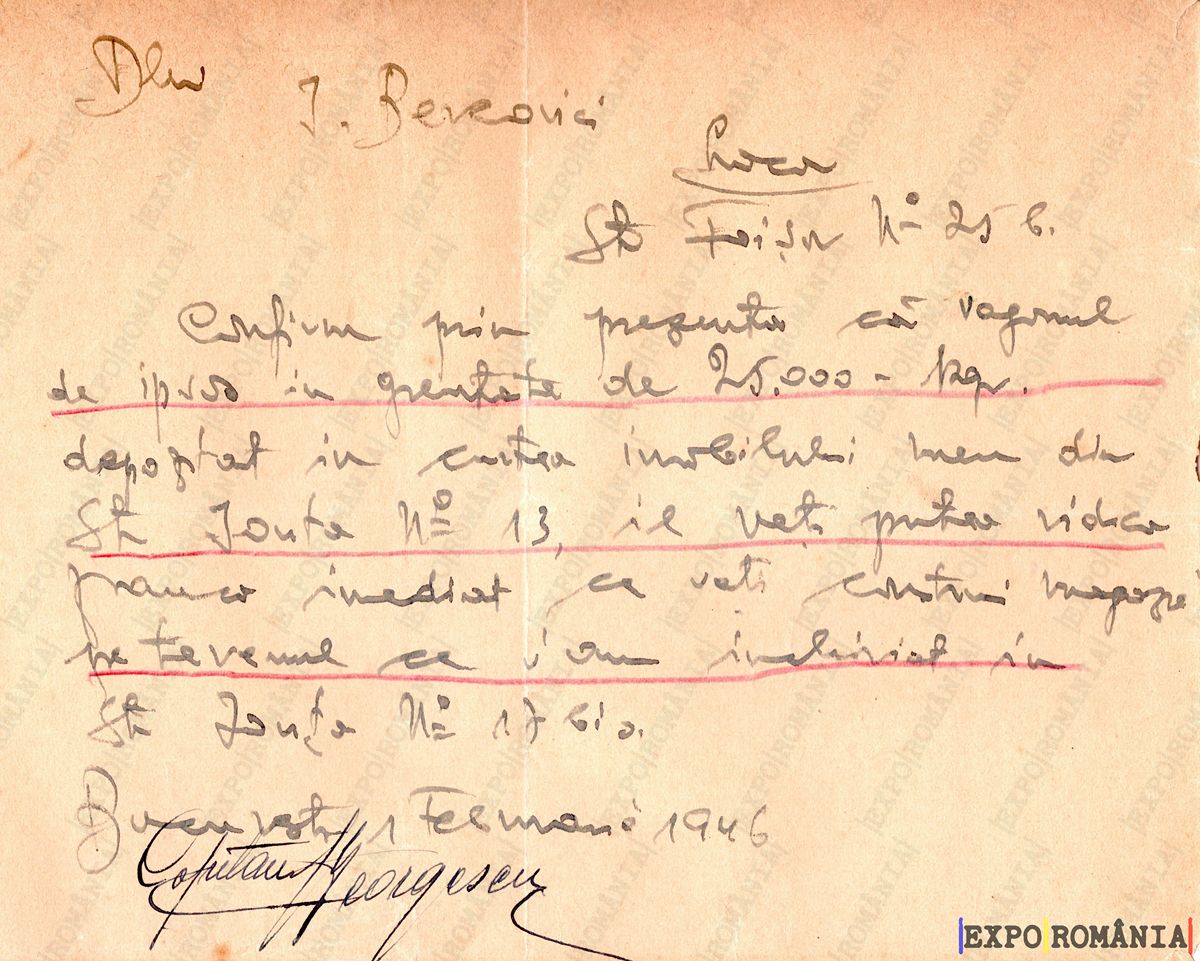 Dlui
J. Bercovici
Loco
Str Foișor Nº 25 b.
Confirm prin prezenta că vagonul
de ipsos in greutate de 25.000 - kgr.
depozitat in curtea imobilului meu din
Str Ionța Nº 13, il veți putea ridica
franco imediat ce veți construi magazie
pe terenul ce i'am inchiriat in
Str Ionța Nº 17 bis.
București 1 Februarie 1946
Capitan Georgescu
|EXPO|ROMÂNIA|